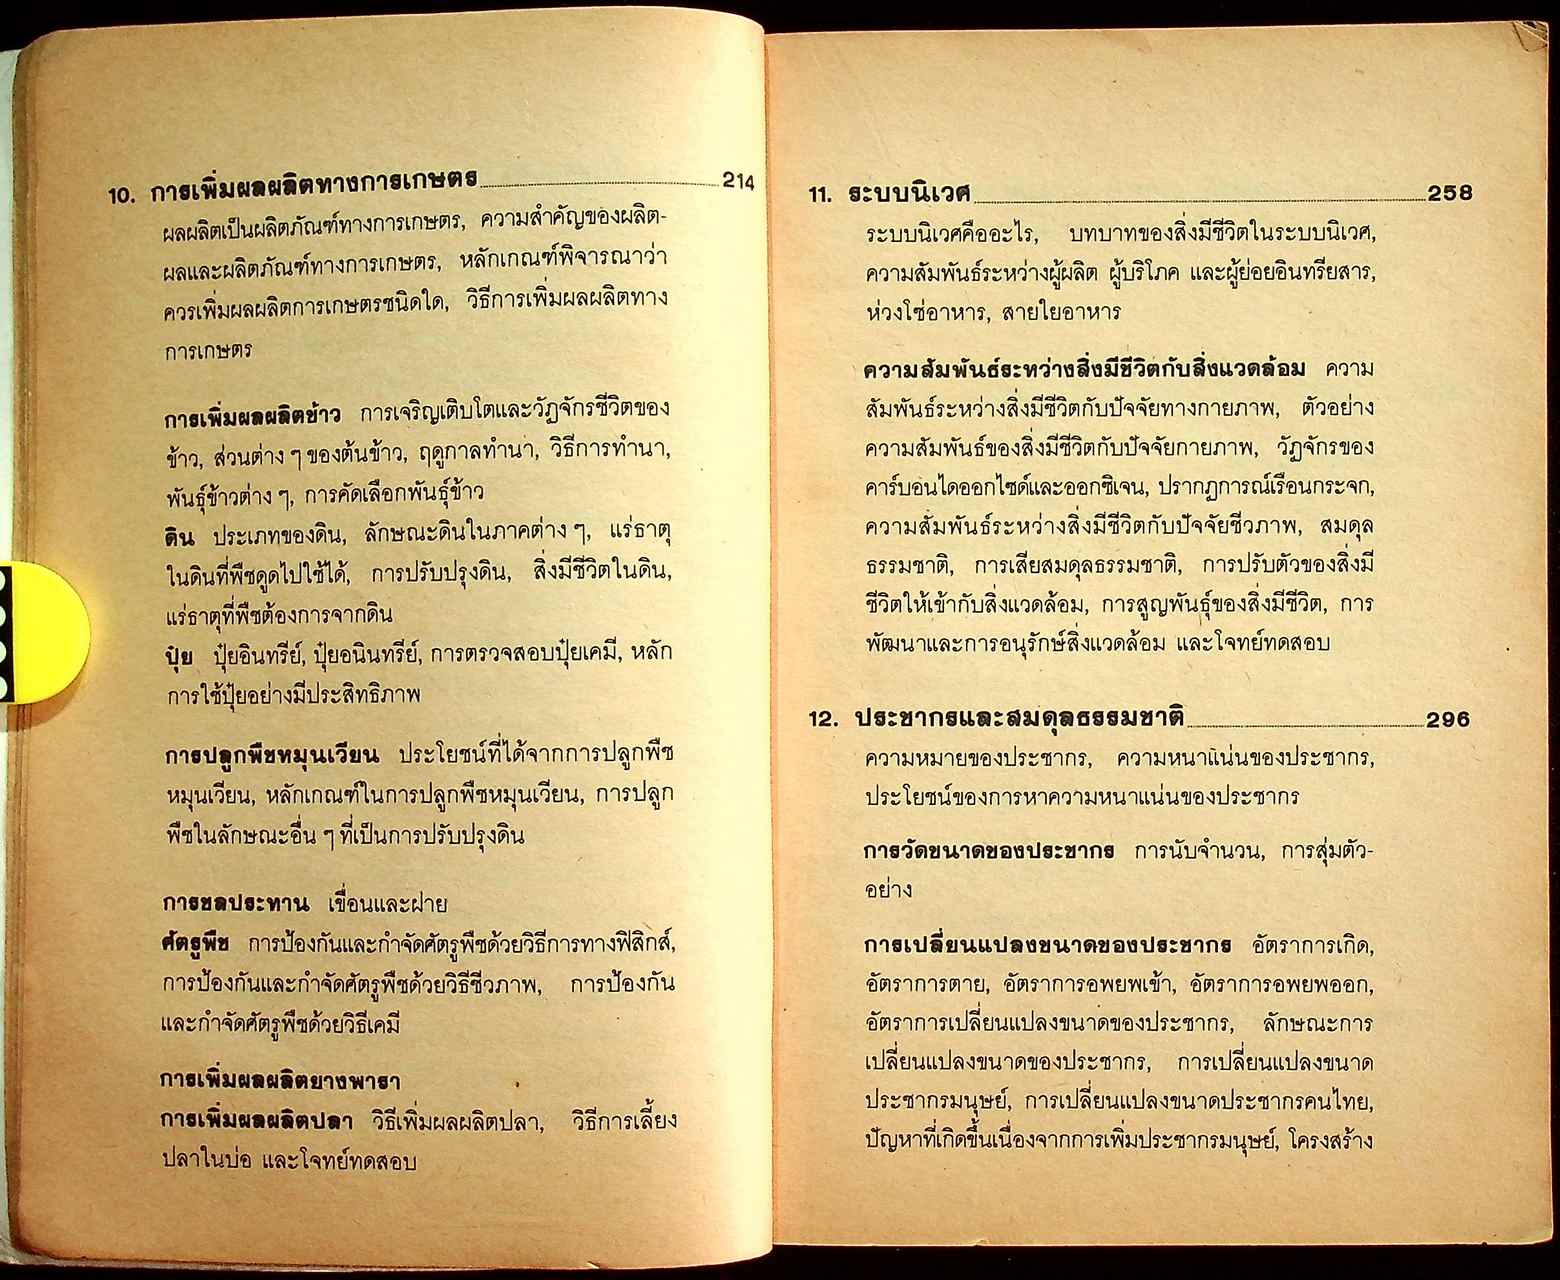 10. การเพิ่มผลผลิตทางการเกษตร 214
ผลผลิตเป็นผลิตภัณฑ์ทางการเกษตร, ความสำคัญของผลิต-
ผลและผลิตภัณฑ์ทางการเกษตร, หลักเกณฑ์พิจารณาว่า
ควรเพิ่มผลผลิตการเกษตรชนิดใด, วิธีการเพิ่มผลผลิตทาง
การเกษตร
การเพิ่มผลผลิตข้าว การเจริญเติบโตและวัฏจักรชีวิตของ
ข้าว, ส่วนต่าง ๆ ของต้นข้าว, ฤดูกาลทำนา, วิธีการทำนา,
พันธุ์ข้าวต่าง ๆ, การคัดเลือกพันธุ์ข้าว
ดิน ประเภทของดิน, ลักษณะดินในภาคต่าง ๆ, แร่ธาตุ
ในดินที่พืชดูดไปใช้ได้, การปรับปรุงดิน, สิ่งมีชีวิตในดิน,
แร่ธาตุที่พืชต้องการจากดิน
ปุ๋ย ปุ๋ยอินทรีย์, ปุ๋ยอนินทรีย์, การตรวจสอบปุ๋ยเคมี, หลัก
การใช้ปุ๋ยอย่างมีประสิทธิภาพ
การปลูกพืชหมุนเวียน ประโยชน์ที่ได้จากการปลูกพืช
หมุนเวียน, หลักเกณฑ์ในการปลูกพืชหมุนเวียน, การปลูก
พืชในลักษณะอื่น ๆ ที่เป็นการปรับปรุงดิน
การชลประทาน เขื่อนและฝาย
ศัตรูพืช การป้องกันและกำจัดศัตรูพืชด้วยวิธีการทางฟิสิกส์,
การป้องกันและกำจัดศัตรูพืชด้วยวิธีชีวภาพ, การป้องกัน
และกำจัดศัตรูพืชด้วยวิธีเคมี
การเพิ่มผลผลิตยางพารา
การเพิ่มผลผลิตปลา วิธีเพิ่มผลผลิตปลา, วิธีการเลี้ยง
ปลาในบ่อ และโจทย์ทดสอบ
11. ระบบนิเวศ 258
ระบบนิเวศคืออะไร, บทบาทของสิ่งมีชีวิตในระบบนิเวศ,
ความสัมพันธ์ระหว่างผู้ผลิต ผู้บริโภค และผู้ย่อยอินทรียสาร,
ห่วงโซ่อาหาร, สายใยอาหาร
ความสัมพันธ์ระหว่างสิ่งมีชีวิตกับสิ่งแวดล้อม ความ
สัมพันธ์ระหว่างสิ่งมีชีวิตกับปัจจัยทางกายภาพ, ตัวอย่าง
ความสัมพันธ์ของสิ่งมีชีวิตกับปัจจัยกายภาพ, วัฏจักรของ
คาร์บอนไดออกไซด์และออกซิเจน, ปรากฏการณ์เรือนกระจก,
ความสัมพันธ์ระหว่างสิ่งมีชีวิตกับปัจจัยชีวภาพ, สมดุล
ธรรมชาติ, การเสียสมดุลธรรมชาติ, การปรับตัวของสิ่งมี
ชีวิตให้เข้ากับสิ่งแวดล้อม, การสูญพันธุ์ของสิ่งมีชีวิต, การ
พัฒนาและการอนุรักษ์สิ่งแวดล้อม และโจทย์ทดสอบ
12. ประชากรและสมดุลธรรมชาติ 296
ความหมายของประชากร, ความหนาแน่นของประชากร,
ประโยชน์ของการหาความหนาแน่นของประชากร
การวัดขนาดของประชากร การนับจำนวน, การสุ่มตัว-
อย่าง
การเปลี่ยนแปลงขนาดของประชากร อัตราการเกิด,
อัตราการตาย, อัตราการอพยพเข้า, อัตราการอพยพออก,
อัตราการเปลี่ยนแปลงขนาดของประชากร, ลักษณะการ
เปลี่ยนแปลงขนาดของประชากร, การเปลี่ยนแปลงขนาด
ประชากรมนุษย์, การเปลี่ยนแปลงขนาดประชากรคนไทย,
ปัญหาที่เกิดขึ้นเนื่องจากการเพิ่มประชากรมนุษย์, โครงสร้าง